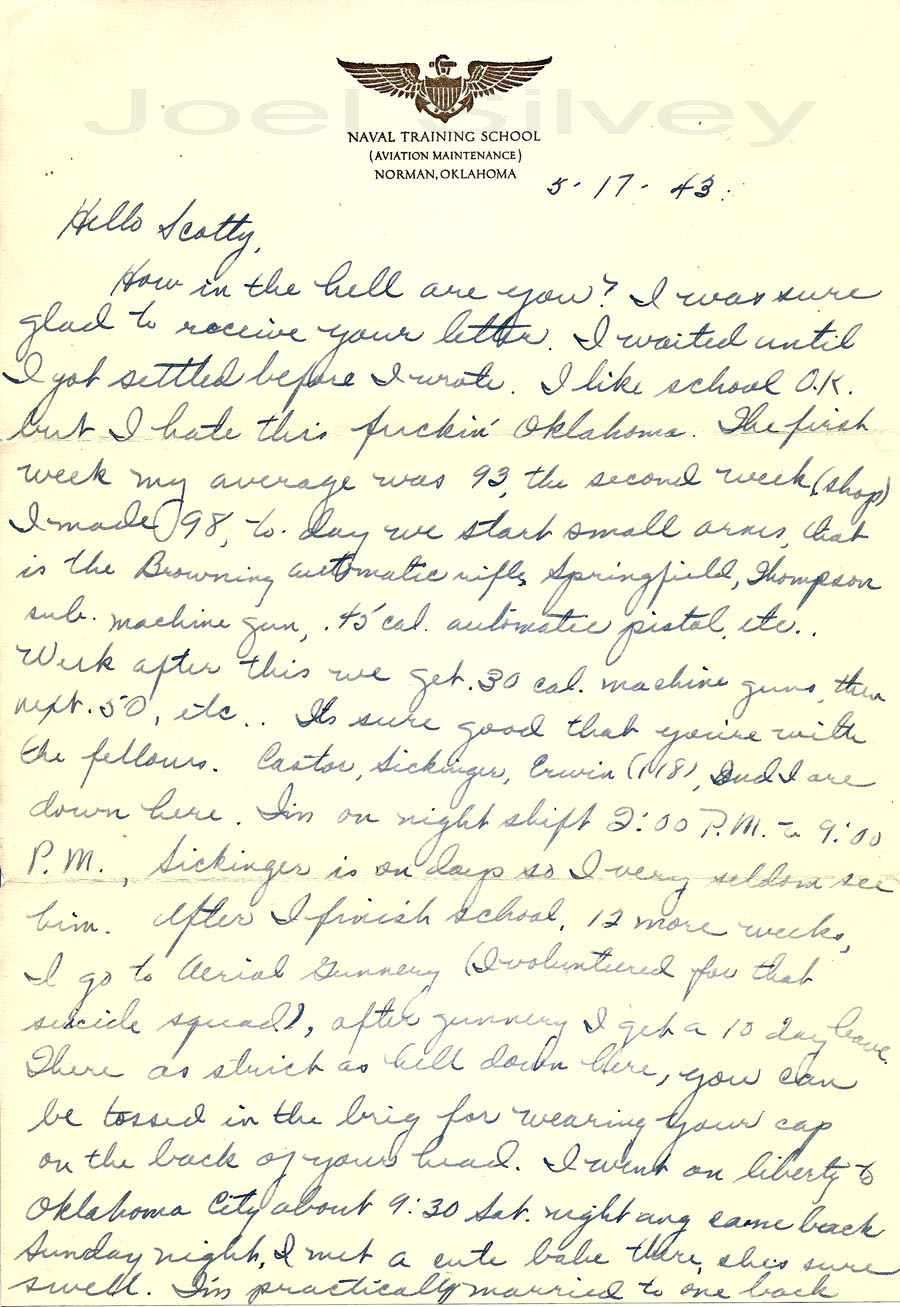 Joel Silvey
NAVAL TRAINING SCHOOL
(AVIATION MAINTENANCE)
NORMAN, OKLAHOMA
5-17-43.
Hello Scotty,
How in the hell are you? I was sure
glad to receive your letter. I waited until
I got settled before I wrote. I like school O.K.
but I hate this fuckin' Oklahoma. The first
week my average was 93, the second week (shop)
I made 98, to-day we start small arms, that
is the Browning automatic rifle, Springfield, Thompson
sub. machine gun, .45 cal. automatic pistol, etc..
Week after this we get .30 cal. machine guns, then
next .50, etc.. Its sure good that you're with
the fellows. Castor, Sickinger, Erwin (118), and I are
down here. I'm on night shift 2:00 P.M. to 9:00
P.M., Sickinger is on days so I very seldom see
him. After I finish school, 12 more weeks,
I go to Aerial Gunnery (I volunteered for that
suicide squad), after gunnery I get a 10 day leave.
There as strict as hell down here, you can
be tossed in the brig for wearing your cap
on the back of your head. I went on liberty to
Oklahoma City about 9:30 Sat. night ang came back
Sunday night, I met a cute babe there, shes sure
swell. I'm practically married to one back